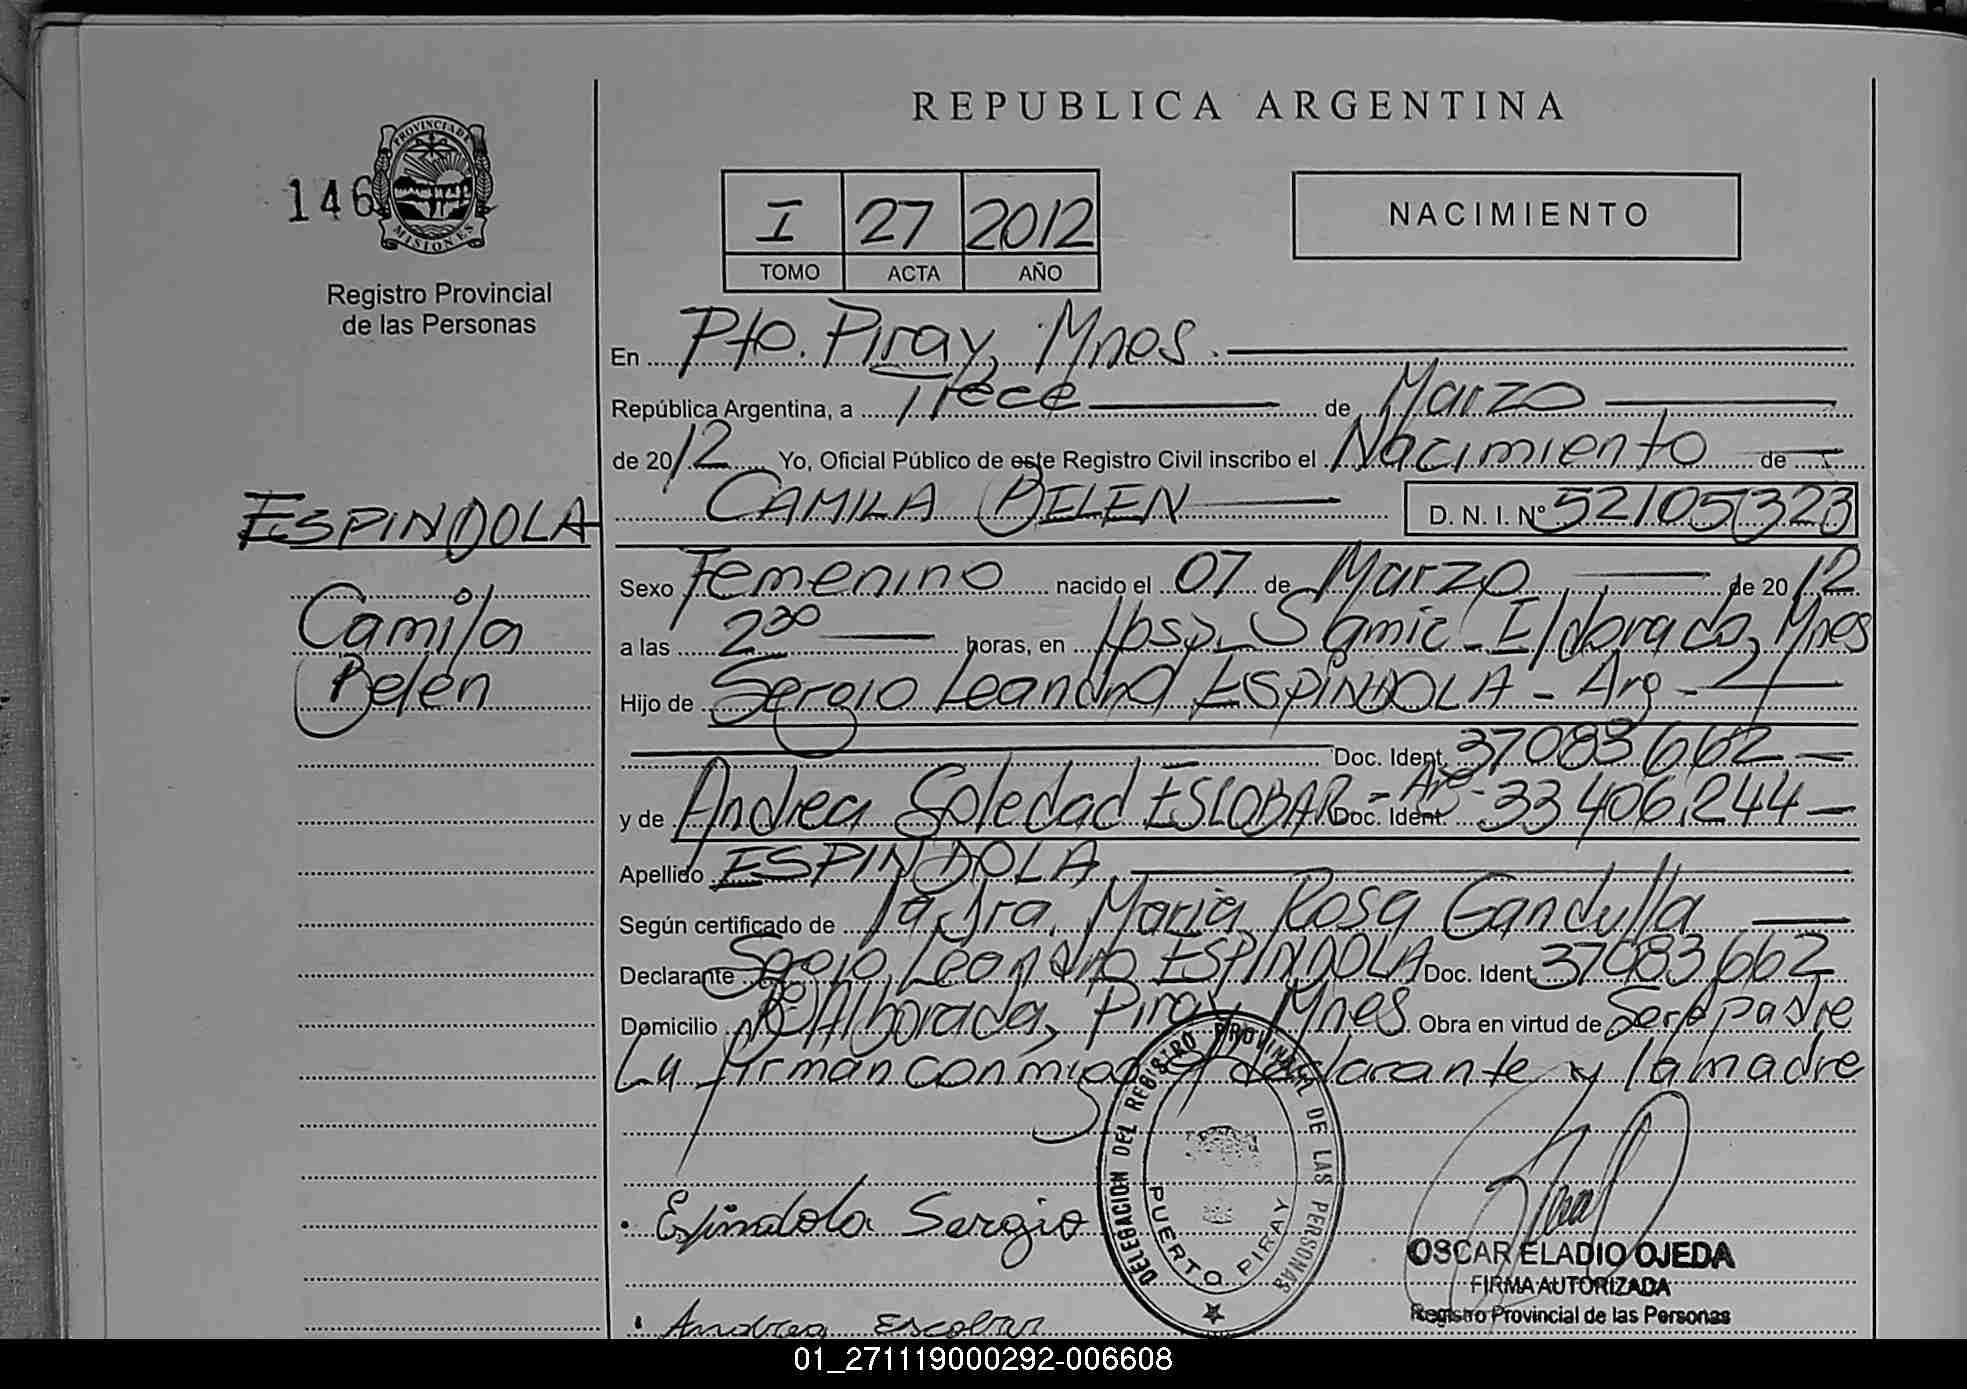 REPUBLICA ARGENTINA
146
PROVINCIA DE
MISIONES
Registro Provincial
de las Personas
I 27 2012
TOMO ACTA AÑO
NACIMIENTO
En Pto. Piray, Mnes.
República Argentina, a Trece de Marzo
de 2012 Yo, Oficial Público de este Registro Civil inscribo el Nacimiento de
CAMILA BELEN D. N. I. N° 52105323
ESPINDOLA
Camila
Belen
Sexo Femenino nacido el 07 de Marzo de 2012
a las 2 30 horas, en Hosp. Samic - Eldorado, Mnes
Hijo de Sergio Leandro ESPINDOLA - Arg -
Doc. Ident. 37083662
y de Andrea Soledad ESCOBAR - Arg - Doc. Ident 33406.244
Apellido ESPINDOLA
Según certificado de la Dra. Maria Rosa Gandulla
Declarante Sergio Leandro ESPINDOLA Doc. Ident 37083662
Domicilio Bº Alborada, Piray, Mnes Obra en virtud de Ser padre
La firman conmigo el declarante y la madre
Espindola Sergio
DELEGACION DEL REGISTRO PROVINCIAL DE LAS PERSONAS
PUERTO PIRAY
OSCAR ELADIO OJEDA
FIRMA AUTORIZADA
Registro Provincial de las Personas
Andrea Escobar
01_271119000292-006608